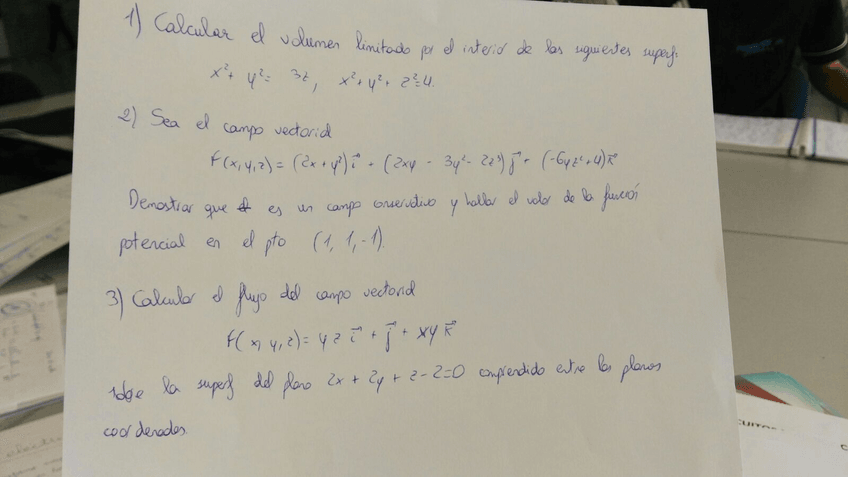 1) Calcular el volumen limitado por el interior de las siguientes superf:
x²+ y²= 3z, x²+y²+z²=4.
2) Sea el campo vectorial
F(x,y,z) = (2x+y²) i⃗ + (2xy - 3y² - 2z³) j⃗ + (-6yz²+4) k⃗
Demostrar que es un campo conservativo y hallar el valor de la función
potencial en el pto (1, 1, -1).
3) Calcular el flujo del campo vectorial
F(x, y, z) = yz i⃗ + j⃗ + xy k⃗
sobre la superf del plano 2x + 2y + z - 2=0 comprendido entre los planos
coordenados.